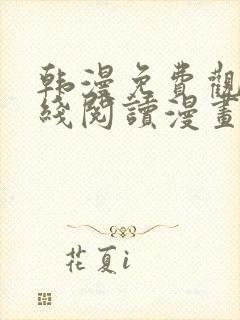 韩漫免費觀
綫閱讀漫畫
花夏i